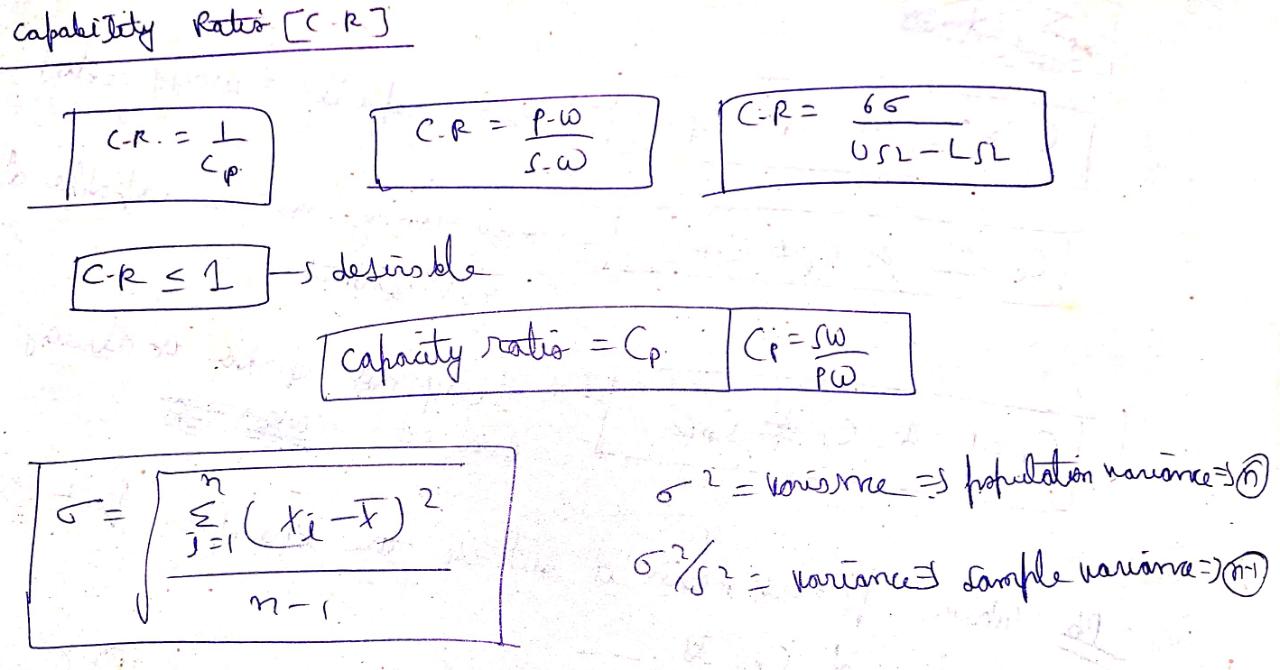 Capability Ratio [C.R]
C.R. = 1/Cp
C.R = P.W/S.W
C.R = 6σ/USL-LSL
C.R ≤ 1 → desirable.
Capacity ratio = Cp. Cp = SW/PW
σ = √(n Σ j=1 (xi - x̄)² / n-1.)
σ² = variance ⇒ population variance ⇒ n
σ²/s² = variance ⇒ sample variance ⇒ n-1